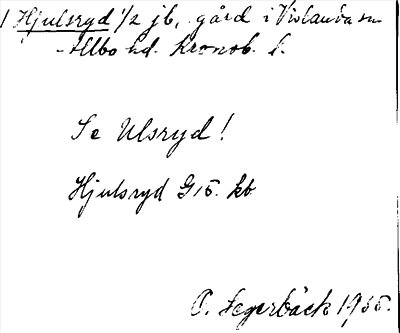 1 Hjulsryd 1/2 jb, gård i Vislanda sn
Allbo hd. Kronob. l.
Se Ulsryd!
Hjulsryd G15. kb
O. Fegerbäck 1955.